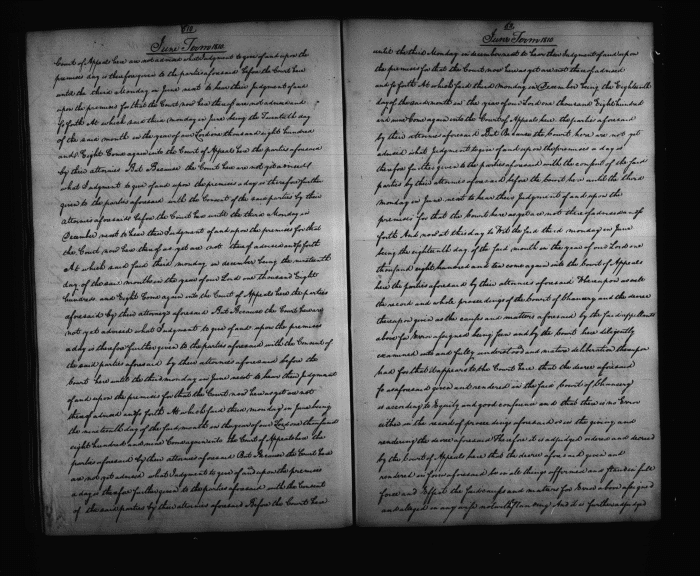 June Term 1810.
Court of Appeals here are not advised what Judgment to give of and upon the
premises day is therefore given to the parties aforesaid before the Court here
until the third Monday in June next to have their Judgment of and
upon the premises for that the Court now here thereof are not advised and
so forth At which said third monday in June being the Twentieth day
of the said month in the year of our Lord one thousand eight hundred
and Eight Come again into the Court of Appeals here the parties aforesaid
by their attornies But Because the Court here are not yet advised
what Judgment to give of and upon the premises a day is therefore further
given to the parties aforesaid with the Consent of the said parties by their
attornies aforesaid before the Court here until the third Monday in
December next to have their Judgment of and upon the premises for that
the Court now here thereof as yet are not thereof advised and so forth
At which said third monday in december being the nineteenth
day of the said month in the year of our Lord one Thousand Eight
hundred and Eight Come again into the Court of Appeals here the parties
aforesaid by their attornies aforesaid But Because the Court here are
not yet advised what Judgment to give of and upon the premises
a day is therefore further given to the parties aforesaid with the Consent of
the said parties aforesaid by their attornies aforesaid before the
Court here until the third monday in June next to have their Judgment
of and upon the premises for that the Court now here as yet are not
thereof advised and so forth At which said third monday in June being
the nineteenth day of the said month in the year of our Lord one thousand
eight hundred and nine Come again into the Court of Appeals here the
parties aforesaid by their attornies aforesaid But Because the Court here
are not yet advised what Judgment to give of and upon the premises
a day is therefore further given to the parties aforesaid with the Consent
of the said parties by their attornies aforesaid Before the Court here
June Term 1810
until the third Monday in december next to have their Judgment of and upon
the premises for that the Court now here as yet are not thereof advised
and so forth At which said third monday in December being the Eighteenth
day of the said month in the year of our Lord one thousand Eight hundred
and nine Come again into the Court of Appeals here the parties aforesaid
by their attornies aforesaid But Because the Court here are not yet
advised what Judgment to give of and upon the premises a day is
therefore further given to the parties aforesaid with the consent of the said
parties by their attornies aforesaid before the Court here until the third
monday in June next to hear their Judgment of and upon the
premises for that the Court here as yet are not thereof advised and so
forth And now at this day to Wit the said third monday in June
being the eighteenth day of the said month in the year of our Lord one
thousand eight hundred and ten come again into the Court of Appeals
here the parties aforesaid by their attornies aforesaid Whereupon as well
the record and whole proceedings of the Court of Chancery and the decree
thereupon given as the causes and matters aforesaid by the said appellants
above for Error assigned being seen and by the Court here diligently
examined into and fully understood and mature deliberation thereupon
had for that it appears to the Court here that the decree aforesaid
so as aforesaid given and rendered in the said Court of Chancery
is according to Equity and good conscience and that there is no Error
either in the record of proceedings aforesaid or in the giving and
rendering the decree aforesaid Therefore it is adjudged ordered and decreed
by the Court of Appeals here that the decree aforesaid given and
rendered in form aforesaid be in all things affirmed and stand in full
force and Effect the said causes and matters for Error above assigned
and alleged in any wise notwithstanding And it is further adjudged